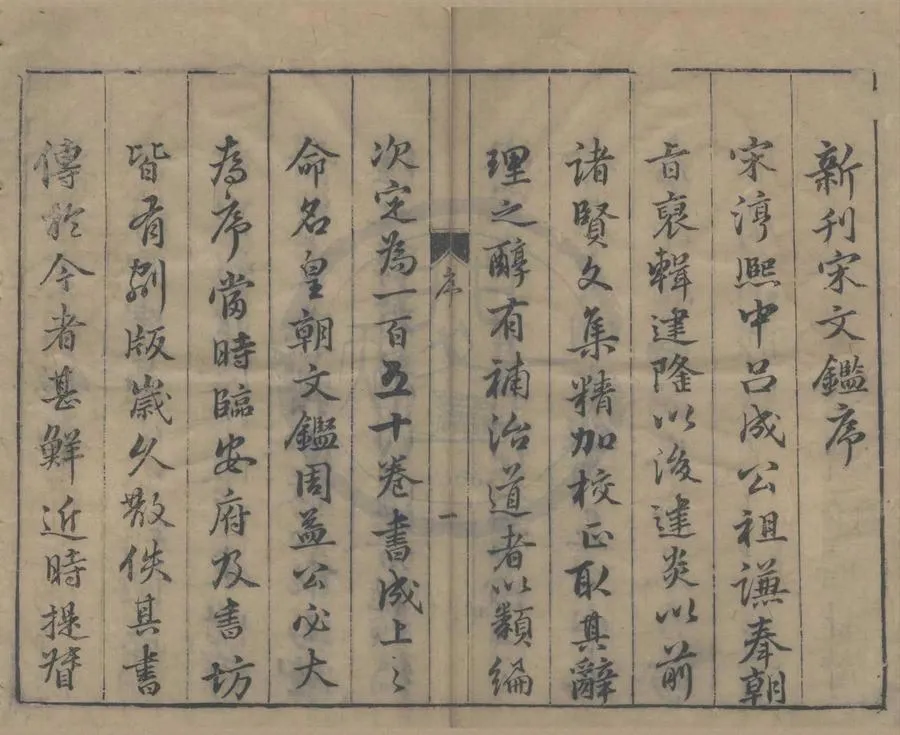 新刊宋文鑑序
宋淳熙中呂成公祖謙奉朝
旨裒輯建隆以後建炎以前
諸賢文集精加校正取其辭
理之醇有補治道者以類編
序
一
次定為一百五十卷書成上之
命名皇朝文鑑周益公必大
為序當時臨安府及書坊
皆有刻版歲久散佚其書
傳於今者甚鮮近時提督